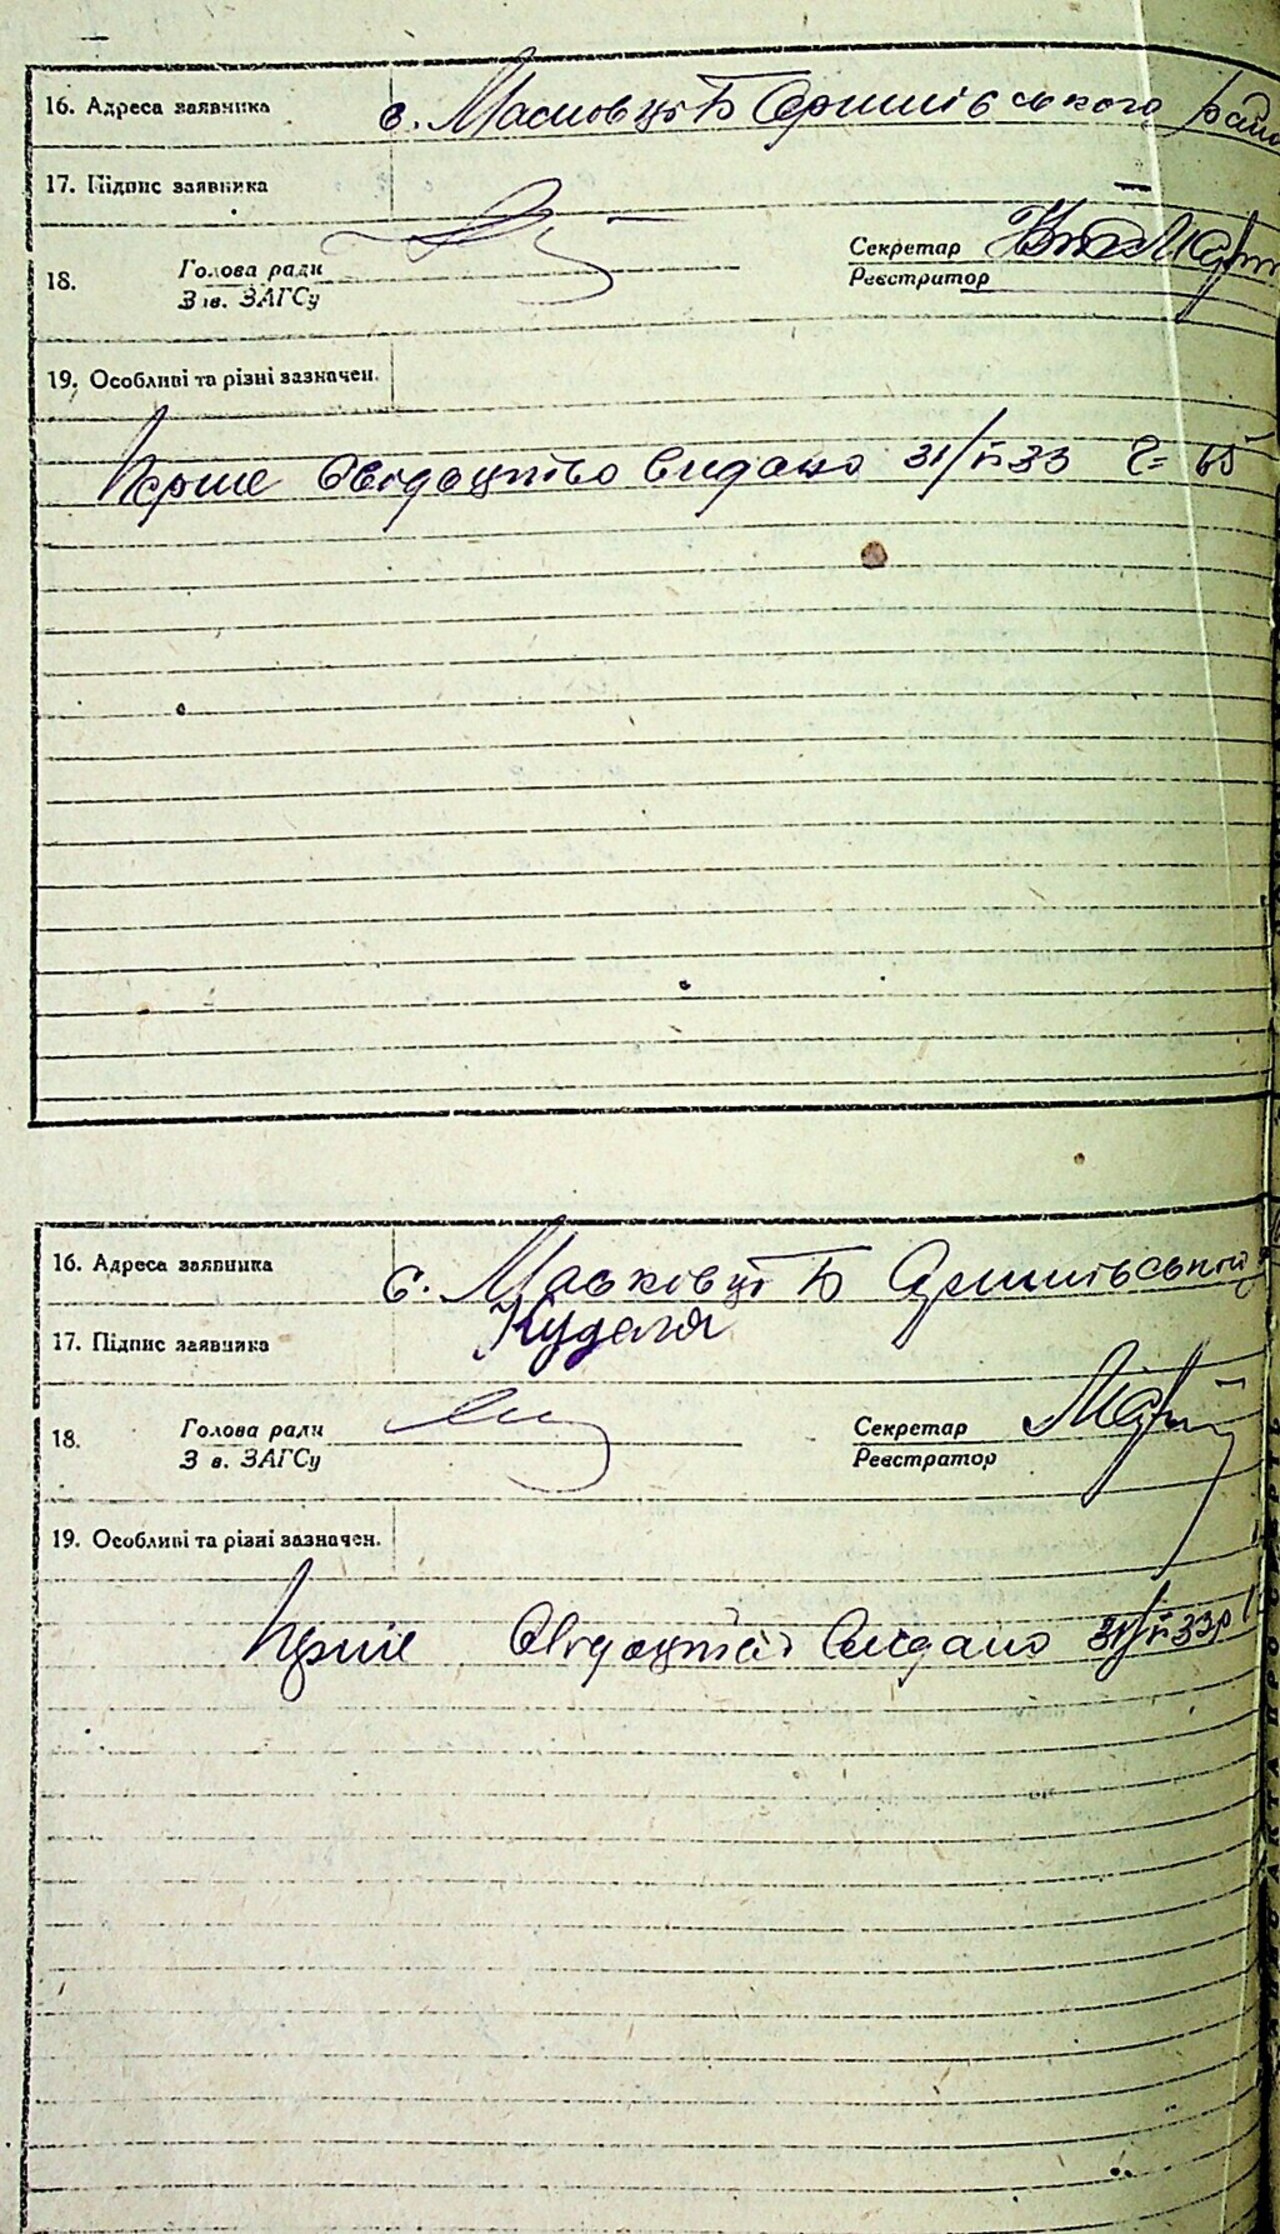 16. Адреса заявника с. Масковці Б Яришівського
17. Підпис заявника
18. Голова ради Секретар
Зав. ЗАГСу Реєстратор
19. Особливі та різні зазначен.
Перше Свідоцтво видано 31/ 33
16. Адреса заявника с. Масківці Б Яришівський
17. Підпис заявника Куделя
18. Голова ради Секретар
З в. ЗАГСу Реєстратор
19. Особливі та різні зазначен.
Перше Свідоцтво видано 31/ 33р